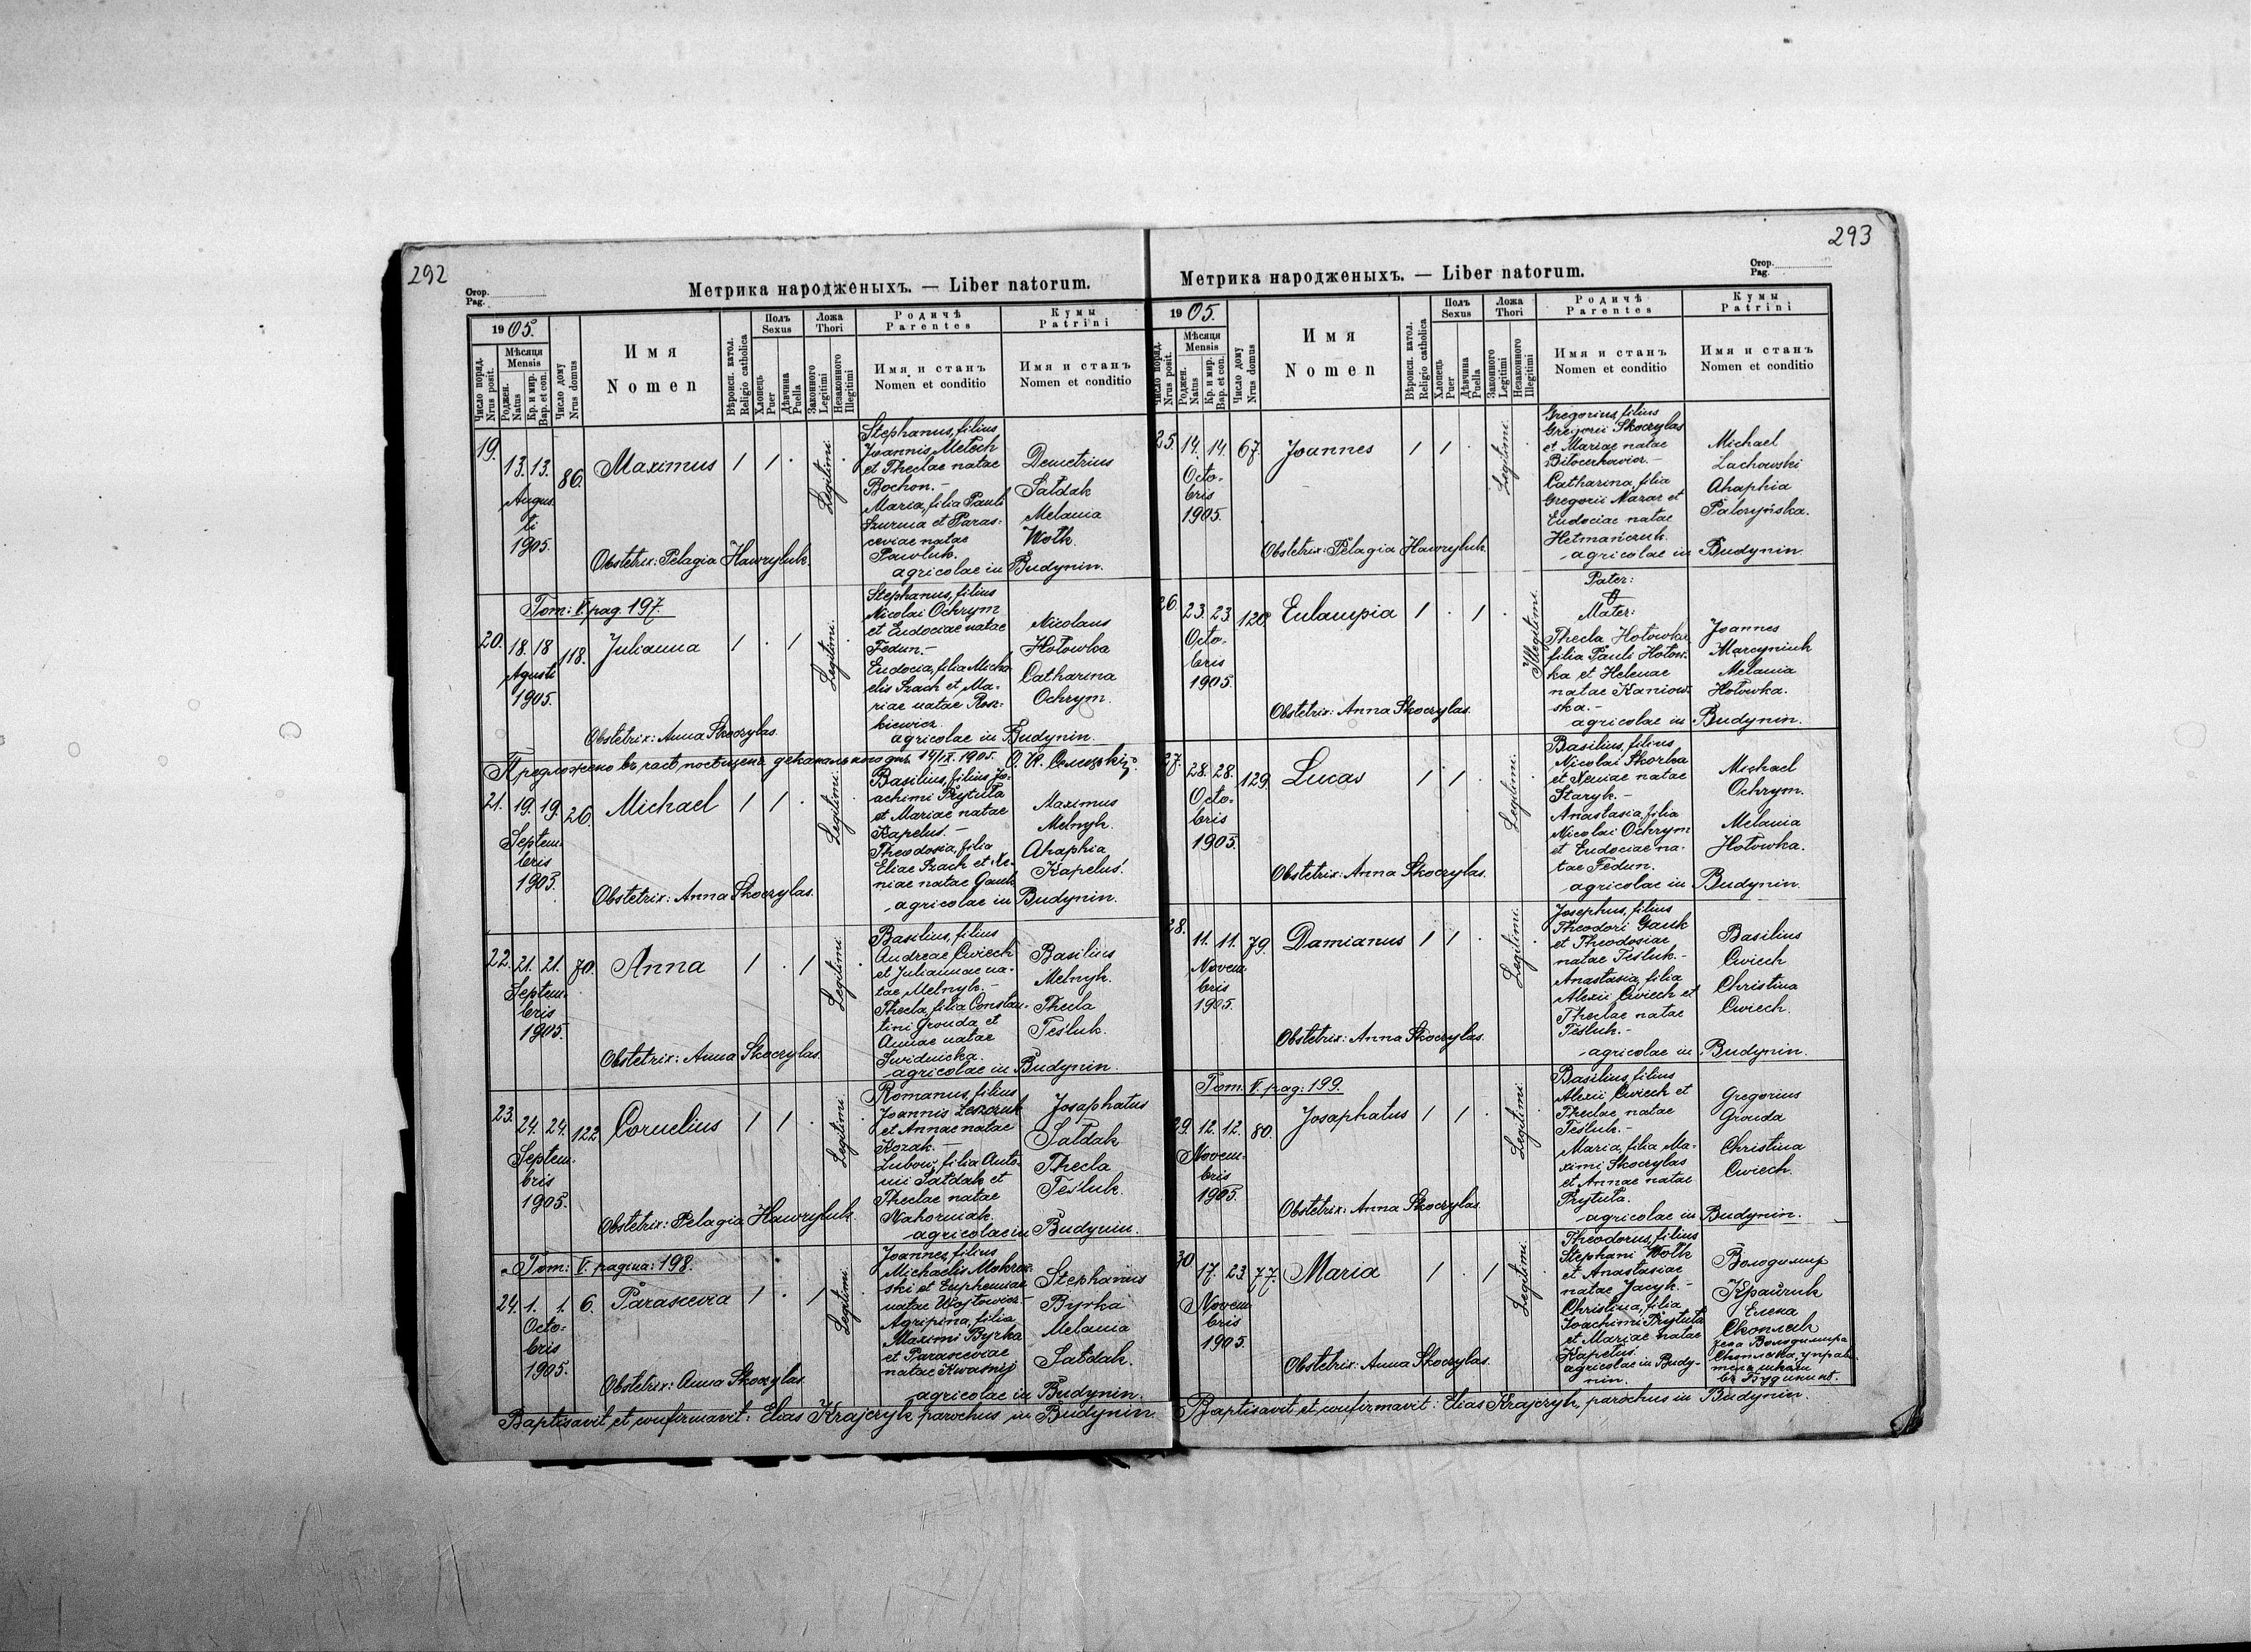 292
Стор.
Pag.
Метрика народженыхъ. — Liber natorum.
1905.
Число поряд.
Nrus posit.
Мѣсяця
Mensis
Роджен.
Natus
Кр. и мир.
Bap. et con.
Число дому
Nrus domus
Имя
Nomen
Вѣроисп. катол.
Religio catholica
Полъ
Sexus
Хлопець
Puer
Дѣвчина
Puella
Ложа
Thori
Законного
Legitimi
Незаконного
Illegitimi
Родичѣ
Parentes
Имя и станъ
Nomen et conditio
Кумы
Patrini
Имя и станъ
Nomen et conditio
19.
13. 13.
Augus
ti
1905.
86.
Maximus
1 1 .
Legitimi.
Stephanus, filius
Joannis Melech
et Theclae natae
Bochon. —
Maria, filia Pauli
Szurma et Paras-
ceviae natae
Pawluk.
agricolae in Budynin.
Demetrius
Sałdak
Melania
Wołk.
Obstetrix: Pelagia Hawryluk.
Tom: V. pag. 197.
20.
18. 18
Agusti
1905.
118.
Julianna
1 . 1
Legitimi.
Stephanus, filius
Nicolai Ochrym
et Eudociae natae
Fedun. —
Eudocia, filia Micha
elis Szach et Ma-
riae natae Rosz-
kiewicz.
agricolae in Budynin.
Nicolaus
Hołowka
Catharina
Ochrym.
Obstetrix: Anna Skoczylas.
14/IX. 1905.
21.
19. 19.
Septem-
bris
1905.
26.
Michael
1 1 .
Legitimi.
Basilius, filius Jo-
achimi Prytuła
et Mariae natae
Kapelus. —
Theodosia, filia
Eliae Szach et Xe-
niae natae Gauk
agricolae in Budynin.
Maximus
Melnyk.
Ahaphia
Kapelus.
Obstetrix: Anna Skoczylas.
22.
21. 21.
Septem-
bris
1905.
70.
Anna
1 . 1
Legitimi.
Basilius, filius
Andreae Cwiech
et Juliannae na-
tae Melnyk. —
Thecla, filia Constan-
tini Gronda et
Annae natae
Swidnicka.
agricolae in Budynin.
Basilius
Melnyk.
Thecla
Teśluk.
Obstetrix: Anna Skoczylas.
23.
24. 24.
Septem-
bris
1905.
122
Cornelius
1 1 .
Legitimi.
Romanus, filius
Joannis Leszczuk
et Annae natae
Kozak. —
Lubow, filia Anto-
nii Sałdak et
Theclae natae
Nahorniak.
agricolae in Budynin.
Josaphatus
Sałdak
Thecla
Teśluk.
Obstetrix: Pelagia Hawryluk.
Tom: V. pagina: 198.
24.
1. 1.
Octo-
bris
1905.
6.
Parascevia
1 . 1
Legitimi.
Joannes, filius
Michaelis Mokrow-
ski et Euphemiae
natae Wojtowicz. —
Agripina, filia
Maximi Byrka
et Parasceviae
natae Kwasnij
agricolae in Budynin.
Stephanus
Byrka
Melania
Sałdak.
Obstetrix: Anna Skoczylas.
Baptisavit et confirmavit: Elias Krajczyk parochus in Budynin.
293
Стор.
Pag.
Метрика народженыхъ. — Liber natorum.
1905.
Число поряд.
Nrus posit.
Мѣсяця
Mensis
Роджен.
Natus
Кр. и мир.
Bap. et con.
Число дому
Nrus domus
Имя
Nomen
Вѣроисп. катол.
Religio catholica
Полъ
Sexus
Хлопець
Puer
Дѣвчина
Puella
Ложа
Thori
Законного
Legitimi
Незаконного
Illegitimi
Родичѣ
Parentes
Имя и станъ
Nomen et conditio
Кумы
Patrini
Имя и станъ
Nomen et conditio
25.
14. 14.
Octo-
bris
1905.
67.
Joannes
1 1 .
Legitimi.
Gregorius, filius
Gregorii Skoczylas
et Mariae natae
Biłocerkowicz. —
Catharina, filia
Gregorii Nazar et
Eudociae natae
Hetmańczuk.
agricolae in Budynin.
Michael
Lachowski
Ahaphia
Palczyńska.
Obstetrix: Pelagia Hawryluk.
26.
23. 23.
Octo-
bris
1905.
120
Eulampia
1 . 1
Illegitimi.
Pater:
Mater:
Thecla Hołowka
filia Pauli Hołow-
ka et Helenae
natae Kaniow-
ska. —
agricolae in Budynin.
Joannes
Marcyniuk
Melania
Hołowka.
Obstetrix: Anna Skoczylas.
27.
28. 28.
Octo-
bris
1905.
129.
Lucas
1 1 .
Legitimi.
Basilius, filius
Nicolai Skorba
et Xeniae natae
Staryk. —
Anastasia, filia
Nicolai Ochrym
et Eudociae na-
tae Fedun.
agricolae in Budynin.
Michael
Ochrym.
Melania
Hołowka.
Obstetrix: Anna Skoczylas.
28.
11. 11.
Novem-
bris
1905.
79.
Damianus
1 1 .
Legitimi.
Josephus, filius
Theodori Gauk
et Theodosiae
natae Teśluk. —
Anastasia, filia
Alexii Cwiech et
Theclae natae
Teśluk. —
agricolae in Budynin.
Basilius
Cwiech
Christina
Cwiech.
Obstetrix: Anna Skoczylas.
Tom. V. pag: 199.
29.
12. 12.
Novem-
bris
1905.
80.
Josaphatus
1 1 .
Legitimi.
Basilius, filius
Alexii Cwiech et
Theclae natae
Teśluk. —
Maria, filia Ma-
ximi Skoczylas
et Annae natae
Prytuła.
agricolae in Budynin.
Gregorius
Gronda
Christina
Cwiech.
Obstetrix: Anna Skoczylas.
30
17. 23.
Novem
bris
1905.
77.
Maria
1 . 1
Legitimi.
Theodorus, filius
Stephani Wołk
et Anastasiae
natae Jacyk. —
Christina, filia
Joachimi Prytuła
et Mariae natae
Kapelus.
agricolae in Budy-
nin.
Володимир
Крайчик
Елена
Скопляк
жена Володимира
Скопляка, управи-
теля школы
въ Будининѣ.
Obstetrix: Anna Skoczylas.
Baptisavit et confirmavit: Elias Krajczyk, parochus in Budynin.